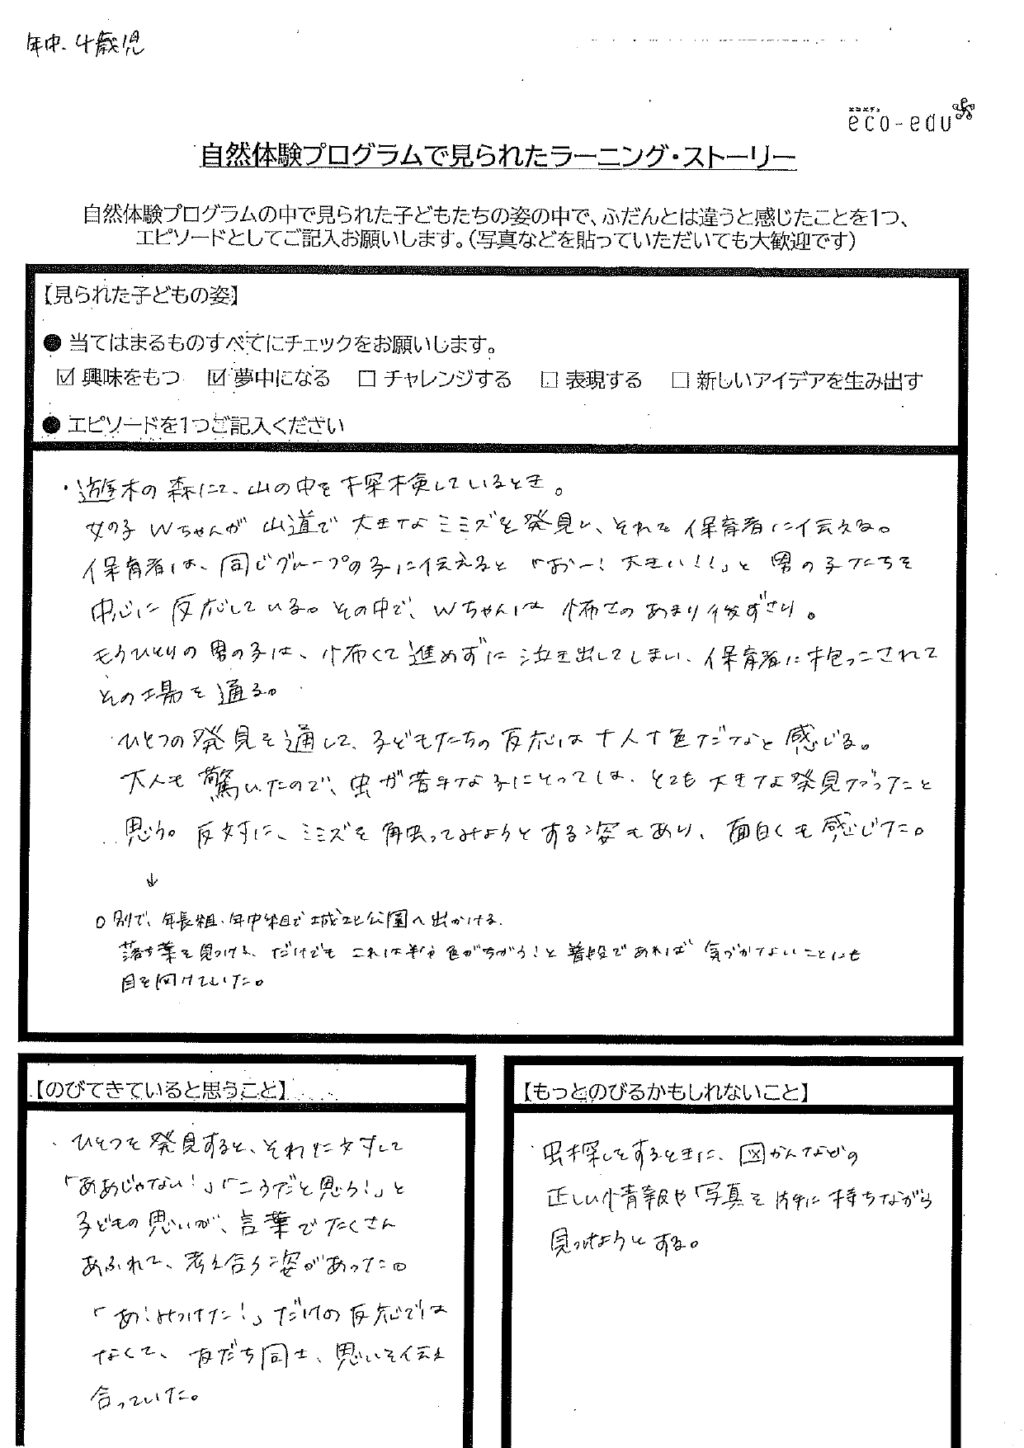 年中.4歳児
エコエデュ
eco-edu
自然体験プログラムで見られたラーニング・ストーリー
自然体験プログラムの中で見られた子どもたちの姿の中で、ふだんとは違うと感じたことを1つ、
エピソードとしてご記入お願いします。（写真などを貼っていただいても大歓迎です）
【見られた子どもの姿】
● 当てはまるものすべてにチェックをお願いします。
☑ 興味をもつ ☑ 夢中になる □ チャレンジする □ 表現する □ 新しいアイデアを生み出す
● エピソードを1つご記入ください
・遊木の森にて、山の中を探検しているとき。
女の子Wちゃんが山道で大きなミミズを発見し、それを保育者に伝える。
保育者は、同じグループの子に伝えると「おー！大きい！！」と男の子たちを
中心に反応している。その中で、Wちゃんは怖さのあまり後ずさり。
もうひとりの男の子は、怖くて進めずに泣き出してしまい、保育者に抱っこされて
その場を通る。
ひとつの発見を通して、子どもたちの反応は十人十色だなと感じる。
大人も驚いたので、虫が苦手な子にとっては、とても大きな発見だったと
思う。反対に、ミミズを触ってみようとする姿もあり、面白くも感じた。
↓
○別で、年長組・年中組で城北公園へ出かける。
落ち葉を見つける、だけでも これは半分色がちがう！と普段であれば気づかないことにも
目を向けていた。
【のびてきていると思うこと】
・ひとつを発見すると、それに対して
「ああじゃない！」「こうだと思う！」と
子どもの思いが、言葉でたくさん
あふれて、考え合う姿があった。
「あ！みつけた！」だけの反応では
なくて、友だち同士、思いを伝え
合っていた。
【もっとのびるかもしれないこと】
・虫探しをするときに、図かんなどの
正しい情報や写真を片手に持ちながら
見つけようとする。